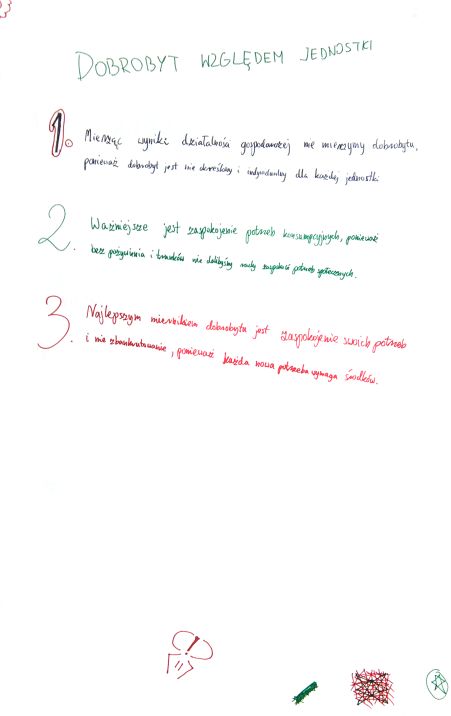 DOBROBYT WZGLĘDEM JEDNOSTKI
1. Mierząc wyniki działalności gospodarczej nie mierzymy dobrobytu,
ponieważ dobrobyt jest nie określony i indywidualny dla każdej jednostki
2. Ważniejsze jest zaspokojenie potrzeb konsumpcyjnych, ponieważ
bez pożywienia i trunków nie dalibyśmy rady zaspokoić potrzeb społecznych.
3. Najlepszym miernikiem dobrobytu jest zaspokojenie swoich potrzeb
i nie zbankrutowanie, ponieważ każda nowa potrzeba wymaga środków.